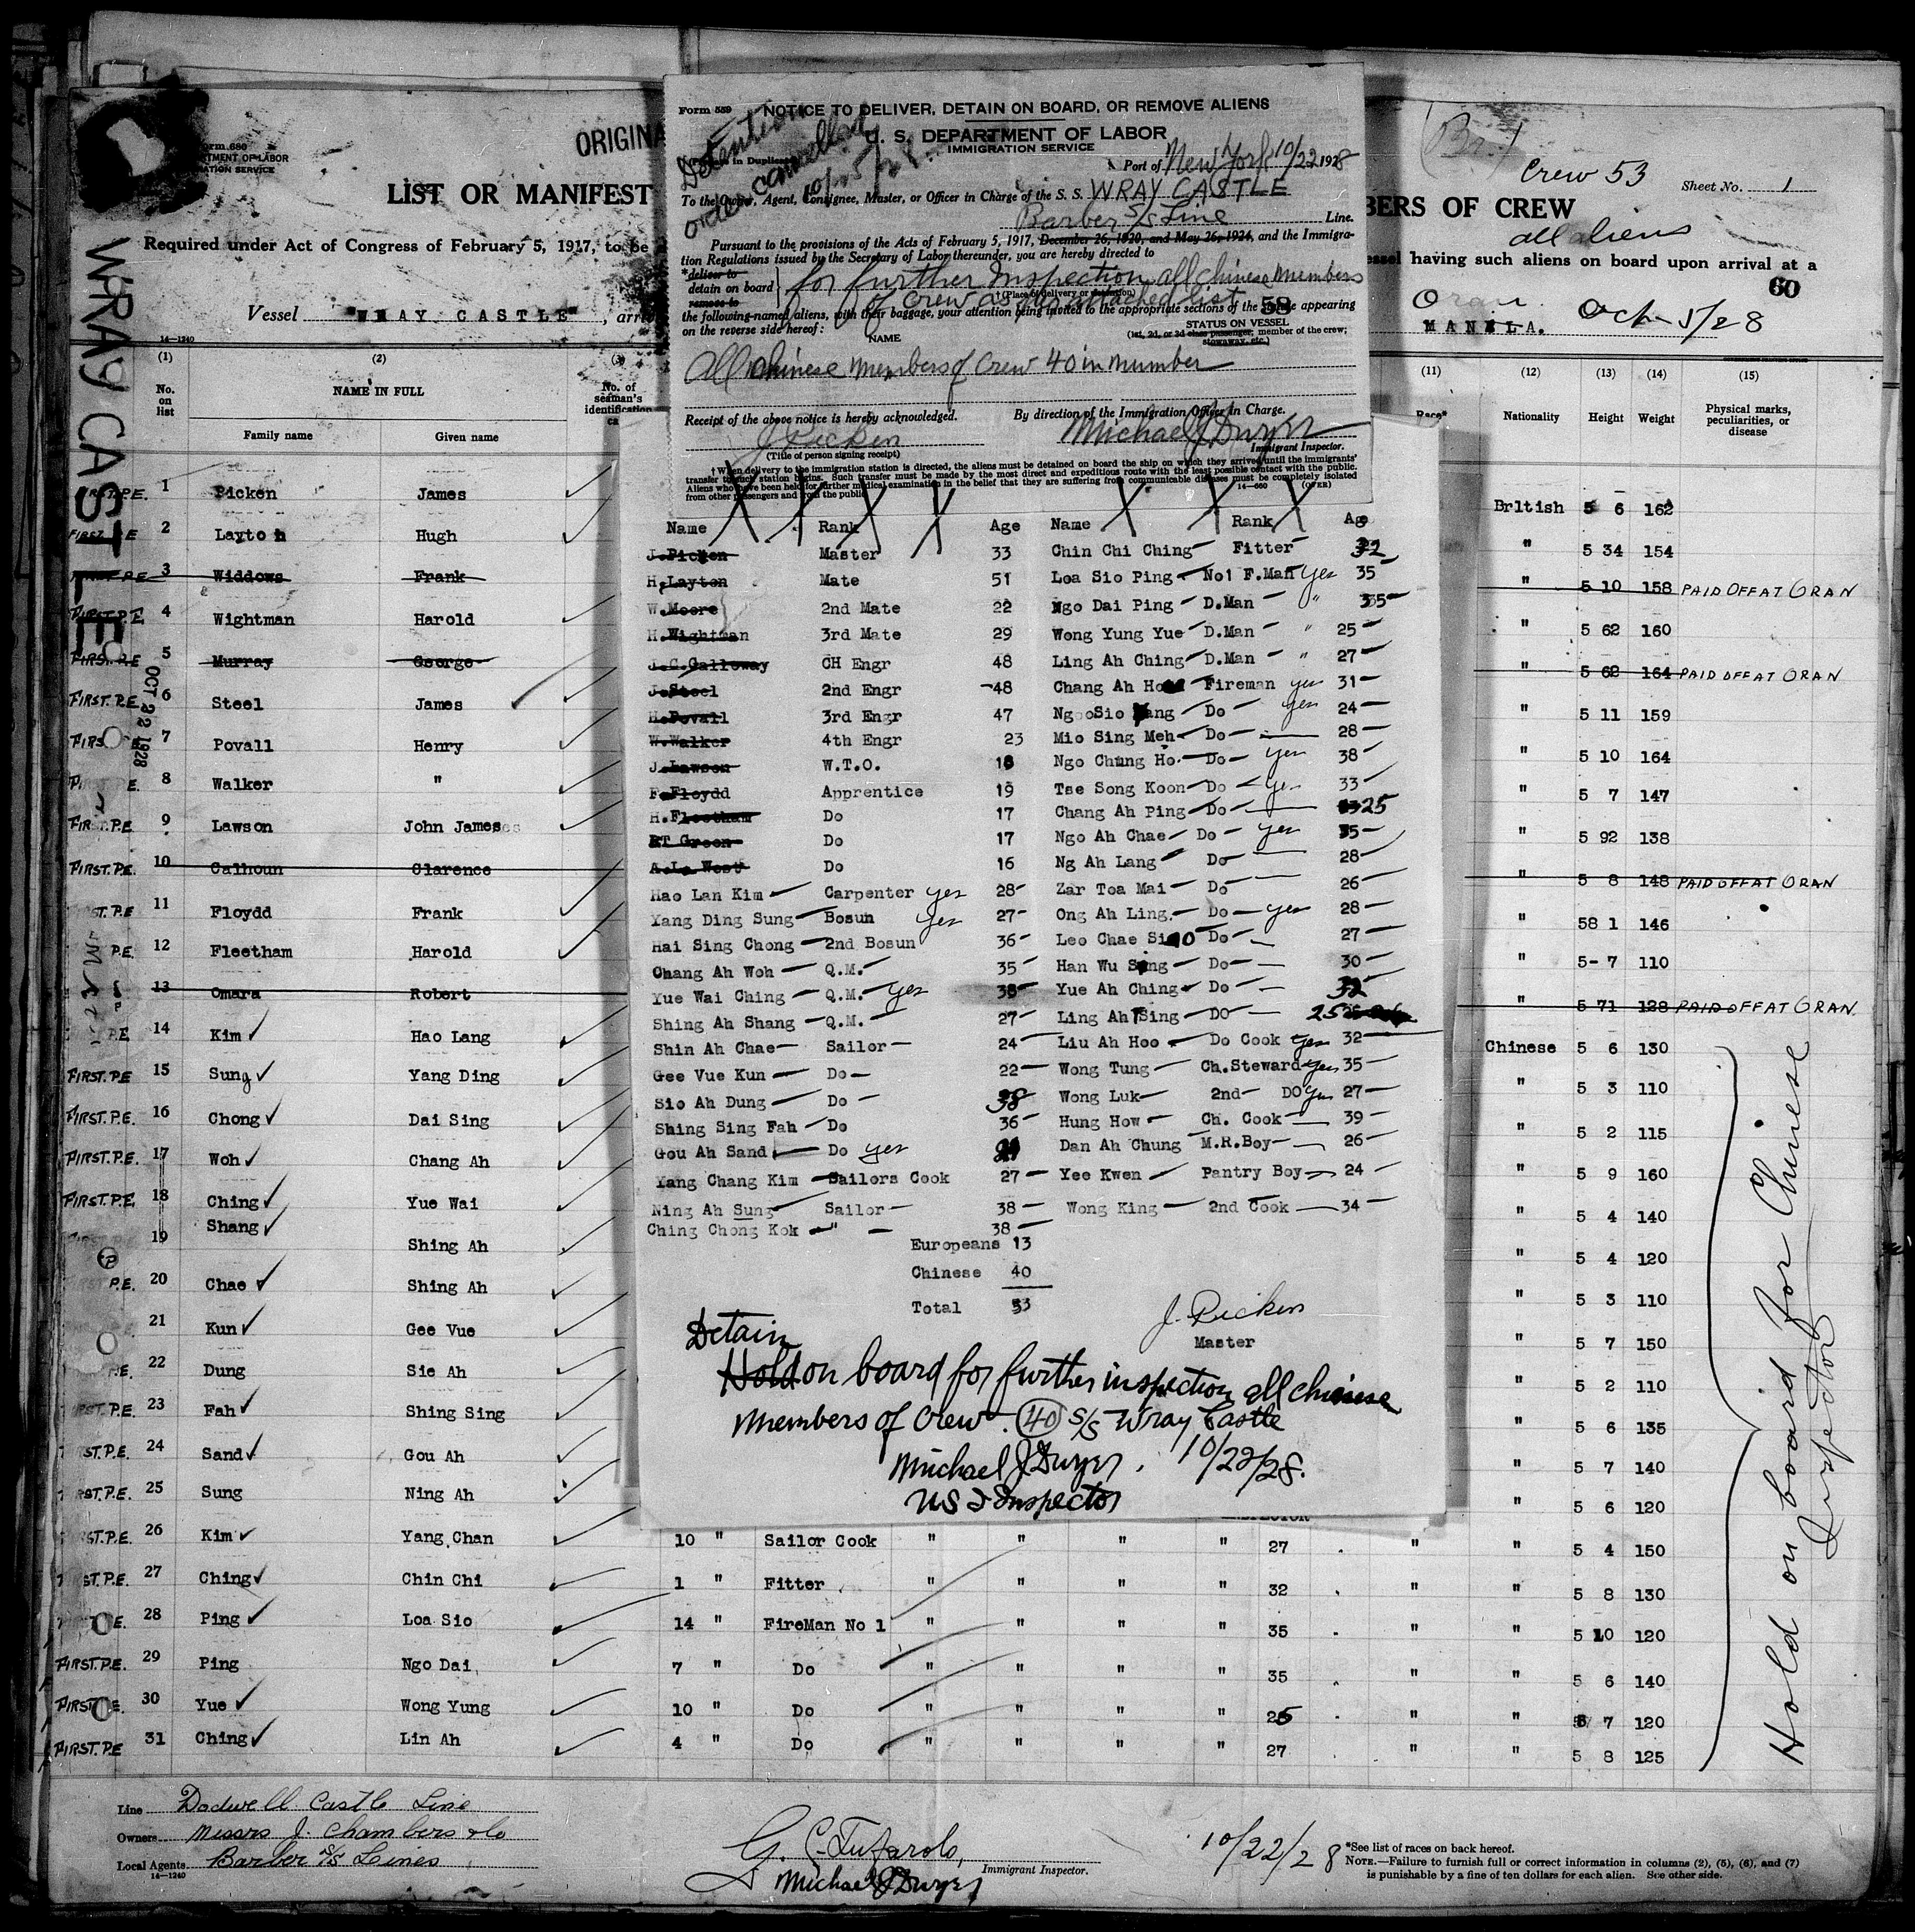 Form 680
DEPARTMENT OF LABOR
IMMIGRATION SERVICE
ORIGINA
LIST OR MANIFEST
Required under Act of Congress of February 5, 1917, to be
Vessel "WRAY CASTLE"
14-1240
WRAY CASTLE
OCT 22 1928
(1) (2) (3)
No. on list
NAME IN FULL
No. of seaman's identification
Family name Given name
FIRST.P.E. 1 Picken James
FIRST.P.E 2 Layton Hugh
FIRST.P.E 3 Widdows Frank
FIRST.P.E 4 Wightman Harold
FIRST.P.E 5 Murray George
FIRST.P.E 6 Steel James
FIRS 7 Povall Henry
E. 8 Walker "
FIRST.P.E 9 Lawson John James
FIRST.P.E. 10 Calhoun Clarence
ST.P.E 11 Floydd Frank
P.E. 12 Fleetham Harold
13 Omara Robert
P.E. 14 Kim ✓ Hao Lang
FIRST.P.E 15 Sung ✓ Yang Ding
FIRST.P.E. 16 Chong ✓ Dai Sing
FIRST.P.E. 17 Woh ✓ Chang Ah
FIRST.P.E 18 Ching ✓ Yue Wai
19 Shang ✓ Shing Ah
P.E. 20 Chae ✓ Shing Ah
21 Kun ✓ Gee Vue
P.E. 22 Dung Sie Ah
ST.P.E. 23 Fah ✓ Shing Sing
ST.P.E. 24 Sand ✓ Gou Ah
RST.P.E. 25 Sung Ning Ah
ST.P.E. 26 Kim ✓ Yang Chan 10 " Sailor Cook " " " " 27 " " 5 4 150
ST.P.E. 27 Ching ✓ Chin Chi 1 " Fitter " " " " 32 " " 5 8 130
E. 28 Ping ✓ Loa Sio 14 " FireMan No 1 " " " " 35 " " 5 10 120
FIRST.P.E. 29 Ping Ngo Dai 7 " Do " " " " 35 " " 5 6 140
FIRST E. 30 Yue ✓ Wong Yung 10 " Do " " " " 25 " " 5 7 120
FIRST.P.E 31 Ching ✓ Lin Ah 4 " Do " " " " 27 " " 5 8 125
Line Dodwell Castle Line
Owners Messrs J. Chambers & Co
Local Agents Barber S/S Lines
14-1240
G. C. Tufarolo,
Immigrant Inspector.
Michael J Dwyer
10/22/28
*See list of races on back hereof.
NOTE.—Failure to furnish full or correct information in columns (2), (5), (6), and (7)
is punishable by a fine of ten dollars for each alien. See other side.
Form 559 NOTICE TO DELIVER, DETAIN ON BOARD, OR REMOVE ALIENS
U. S. DEPARTMENT OF LABOR
IMMIGRATION SERVICE
Detention order cancelled 10/25/28.
Port of New York 10/22 1928
To the Owner, Agent, Consignee, Master, or Officer in Charge of the S. S. WRAY CASTLE
Barber S/S Line Line.
Pursuant to the provisions of the Acts of February 5, 1917, December 26, 1920, and May 26, 1924, and the Immigra-
tion Regulations issued by the Secretary of Labor thereunder, you are hereby directed to
*deliver to
detain on board
remove to
for further Inspection all chinese members
of crew as per attached list
†(Place of delivery or detention)
the following-named aliens, with their baggage, your attention being invited to the appropriate sections of the appearing
on the reverse side hereof:
58
NAME
STATUS ON VESSEL
(1st, 2d, or 3d class passenger, member of the crew;
stowaway, etc.)
All chinese members of crew 40 in number
Receipt of the above notice is hereby acknowledged. By direction of the Immigration Officer in Charge.
J Picken Michael J Dwyer
(Title of person signing receipt) Immigrant Inspector.
†When delivery to the immigration station is directed, the aliens must be detained on board the ship on which they arrived until the immigrants'
transfer to such station begins. Such transfer must be made by the most direct and expeditious route with the least possible contact with the public.
Aliens who have been held for further medical examination in the belief that they are suffering from communicable diseases must be completely isolated
from other passengers and from the public.
14-660 (OVER)
Name Rank Age Name Rank Age
J.Picken Master 33 Chin Chi Ching Fitter 32
H.Layton Mate 51 Loa Sio Ping No1 F.Man yes 35
W.Moore 2nd Mate 22 Ngo Dai Ping D.Man " 35
H.Wightman 3rd Mate 29 Wong Yung Yue D.Man " 25
J.C.Galloway CH Engr 48 Ling Ah Ching D.Man " 27
J.Steel 2nd Engr 48 Chang Ah Fireman yes 31
H.Povall 3rd Engr 47 Ngo Sio Do yes 24
W.Walker 4th Engr 23 Mio Sing Meh Do 28
J.Lawson W.T.O. 18 Ngo Chung Ho. Do yes 38
F.Floydd Apprentice 19 Tse Song Koon Do yes 33
H.Fleetham Do 17 Chang Ah Ping Do 25
RT Green Do 17 Ngo Ah Chae Do yes 35
A.L. West Do 16 Ng Ah Lang Do 28
Hao Lan Kim Carpenter yes 28 Zar Toa Mai Do 26
Yang Ding Sung Bosun yes 27 Ong Ah Ling. Do yes 28
Hai Sing Chong 2nd Bosun 36 Leo Chae Do 27
Chang Ah Woh Q.M. 35 Han Wu Do 30
Yue Wai Ching Q.M. yes 38 Yue Ah Ching Do 32
Shing Ah Shang Q.M. 27 Ling Ah Sing DO 25
Shin Ah Chae Sailor 24 Liu Ah Hoo Do Cook yes 32
Gee Vue Kun Do 22 Wong Tung Ch.Steward yes 35
Sio Ah Dung Do 38 Wong Luk 2nd DO yes 27
Shing Sing Fah Do 36 Hung How Ch. Cook 39
Gou Ah Sand Do yes Dan Ah Chung M.R.Boy 26
Yang Chang Kim Sailors Cook 27 Yee Kwen Pantry Boy 24
Ning Ah Sung Sailor 38 Wong King 2nd Cook 34
Ching Chong Kok " 38
Europeans 13
Chinese 40
Total 53
J. Picken
Master
Detain
Hold on board for further inspection all chinese
members of crew. 40 S/S Wray Castle
Michael J Dwyer. 10/22/28.
US I Inspector
(Br.)
Crew 53 Sheet No. 1
BERS OF CREW
all aliens
essel having such aliens on board upon arrival at a
60
Oran
MANILA. Oct 5/28
(11) (12) (13) (14) (15)
Race* Nationality Height Weight Physical marks, peculiarities, or disease
British 5 6 162
" 5 34 154
" 5 10 158 PAID OFF AT ORAN
" 5 62 160
" 5 62 164 PAID OFF AT ORAN
" 5 11 159
" 5 10 164
" 5 7 147
" 5 92 138
" 5 8 148 PAID OFF AT ORAN
" 58 1 146
" 5-7 110
" 5 71 128 PAID OFF AT ORAN
Chinese 5 6 130
" 5 3 110
" 5 2 115
" 5 9 160
" 5 4 140
" 5 4 120
" 5 3 110
" 5 7 150
" 5 2 110
" 5 6 135
" 5 7 140
" 5 6 120
Hold on board for Chinese
Inspector